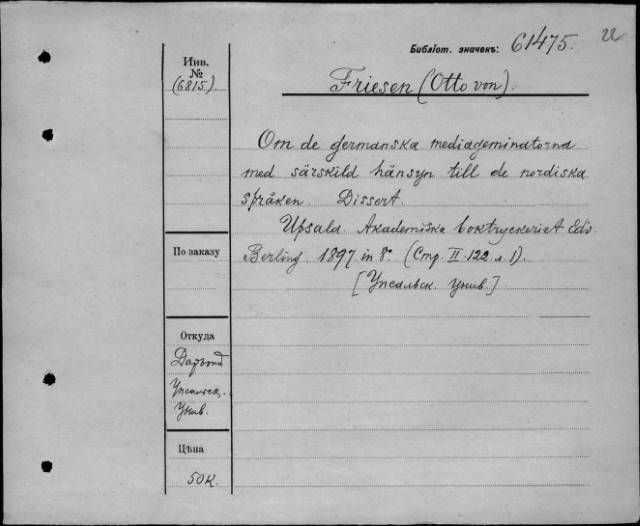 Библіот. значекъ: 61475.
Инв.
№
(6815.)
Friesen (Otto von).
Om de germanska mediageminatorna
med särskild hänsyn till de nordiska
språken. Dissert.
Upsala. Akademiska boktryckeriet Edv.
Berling. 1897. in 8º. (Стр. II. 122. л. 1).
[Упсальск. Унив.]
По заказу
Откуда
Упсальск.
Унив.
Цѣна
50 к.